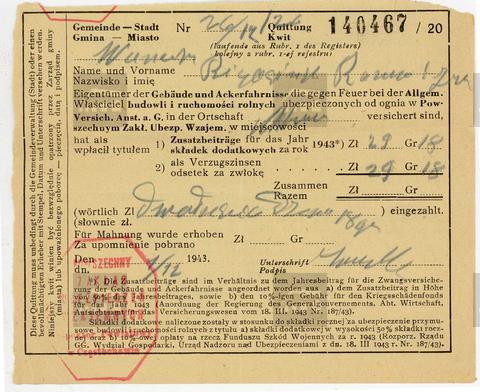 Gemeinde — Stadt
Gmina — Miasto
Nr
Quittung
Kwit
140467 / 20
(laufende aus Rubr. 1 des Registers)
(kolejny z rubr. 1-ej rejestru)
Name und Vorname
Nazwisko i imię
Eigentümer der Gebäude und Ackerfahrnisse die gegen Feuer bei der Allgem.
Właściciel budowli i ruchomości rolnych ubezpieczonych od ognia w Pow-
Versich. Anst. a. G. in der Ortschaft versichert sind,
szechnym Zakł. Ubezp. Wzajem. w miejscowości
hat als
wpłacił tytułem
1) Zusatzbeiträge für das Jahr 1943*) Zł 29 Gr 18
składek dodatkowych za rok
2) als Verzugszinsen Zł 29 Gr 18
odsetek za zwłokę
Zusammen
Razem Zł Gr
(wörtlich Zł eingezahlt.
(słownie zł.
Für Mahnung wurde erhoben
Za upomnienie pobrano Zł Gr
Den 1943.
dn.
Unterschrift
Podpis
*) Die Zusatzbeiträge sind im Verhältnis zu dem Jahresbeitrage für die Zwangsversiche-
rung der Gebäude und Ackerfahrnisse ausgerechnet worden: a) dem Zusatzbeitrag in Höhe
von 50% des Jahresbeitrages, sowie b) den 10%-igen Gebühr für den Kriegsschädenfonds
für das Jahr 1943 (Anordnung der Regierung des Generalgouvernements, Abt. Wirtschaft,
Aufsichtsamt für das Versicherungswesen vom 18. III. 1943 Nr. 187/43).
Składki dodatkowe zostały w stosunku do składki rocznej za ubezpieczenie przy-
musowe budowli i ruchomości rolnych z tytułu a) składki dodatkowej w wysokości 50% składki rocz-
nej oraz b) 10%-owej opłaty na rzecz Funduszu Szkód Wojennych za r. 1943 (Rozporz. Rządu
GG. Wydział Gospodarki, Urząd Nadzoru nad Ubezpieczeniami z dn. 18. III 1943 r. Nr. 187/43).
Diese Quittung muss unbedingt durch die Gemeindeverwaltung (Stadt) oder einen
bevollmächtigten Erheber mit Stempel, Datum und Unterschrift versehen werden.
Niniejszy kwit winien być bezwzględnie opatrzony przez Zarząd gminy
(miasta) lub upoważnionego poborcę — pieczęcią, datą i podpisem.